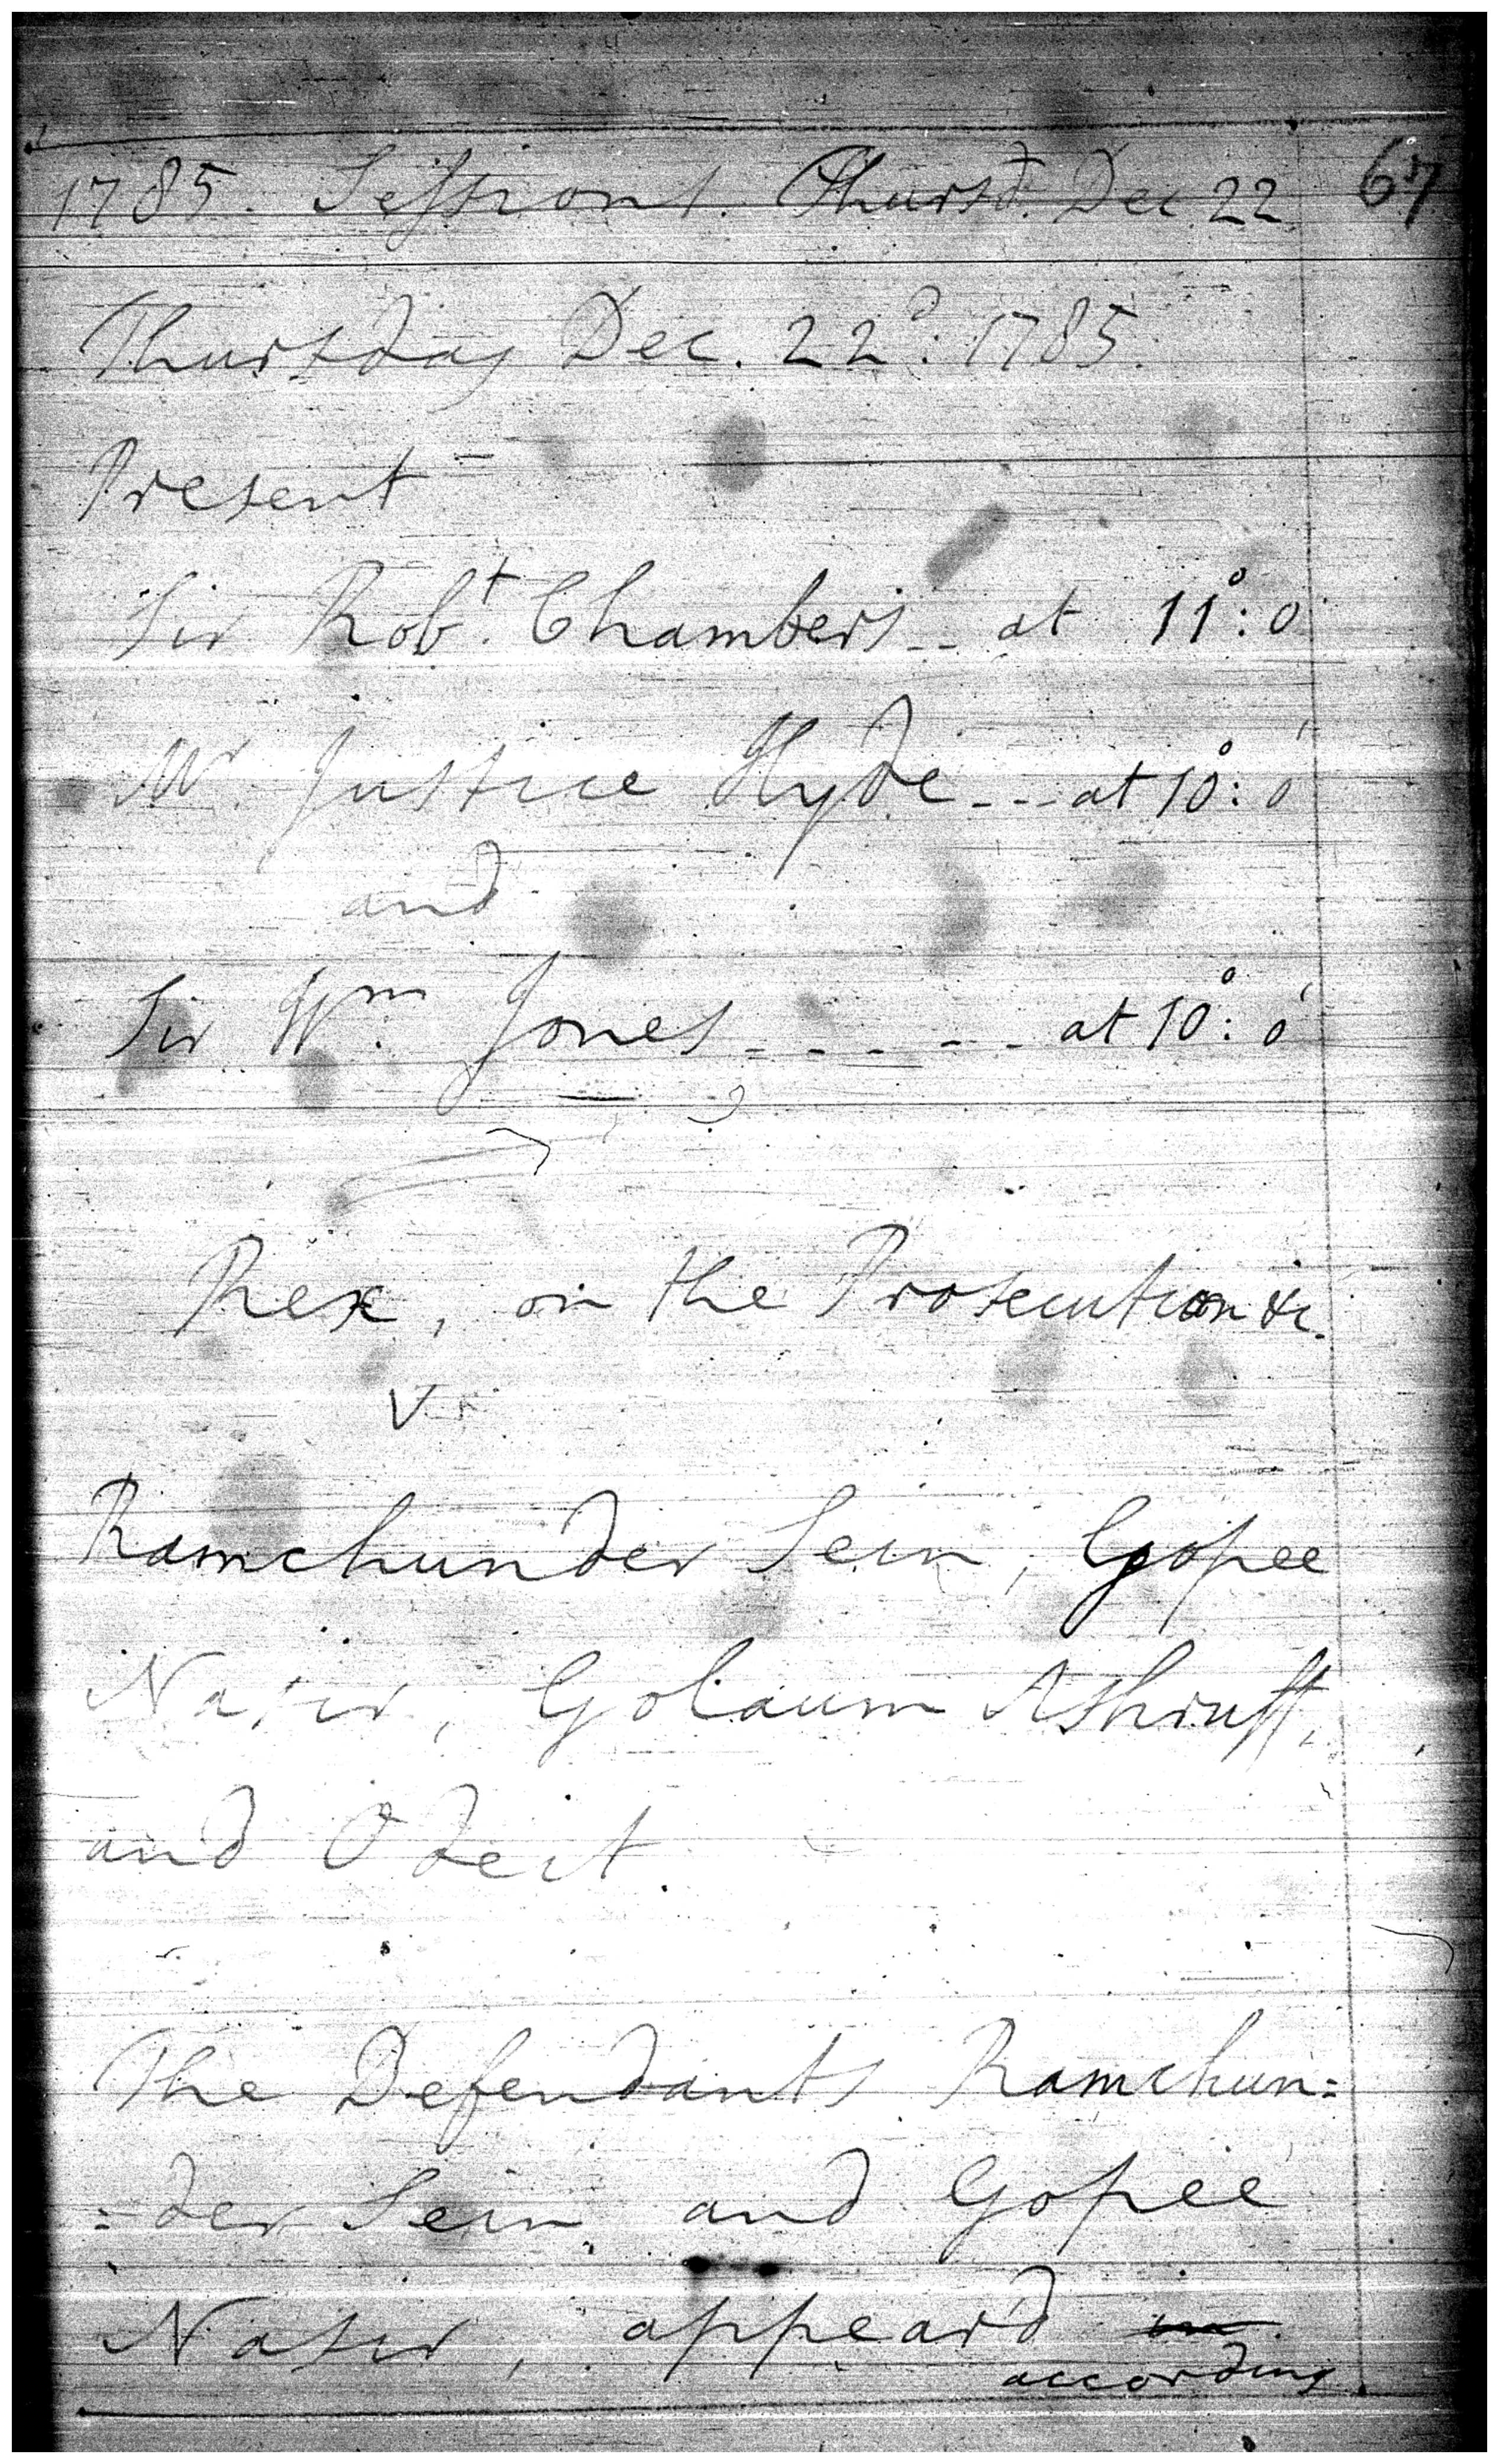 1785. Sessions. Thursd. Dec 22 67
Thursday Dec. 22d. 1785.
Present –
Sir Robt. Chambers -- at 11°: 0'
Mr. Justice Hyde --- at 10°: 0'
and
Sir Wm. Jones ------ at 10°: 0'
Rex, on the Prosecution &c.
v.
Ramchunder Sein, Gopee
Nasir, Golaum Ashruff,
and Odeit.
The Defendants Ramchun=
=der Sein and Gopee
Nasir, appeard in
according